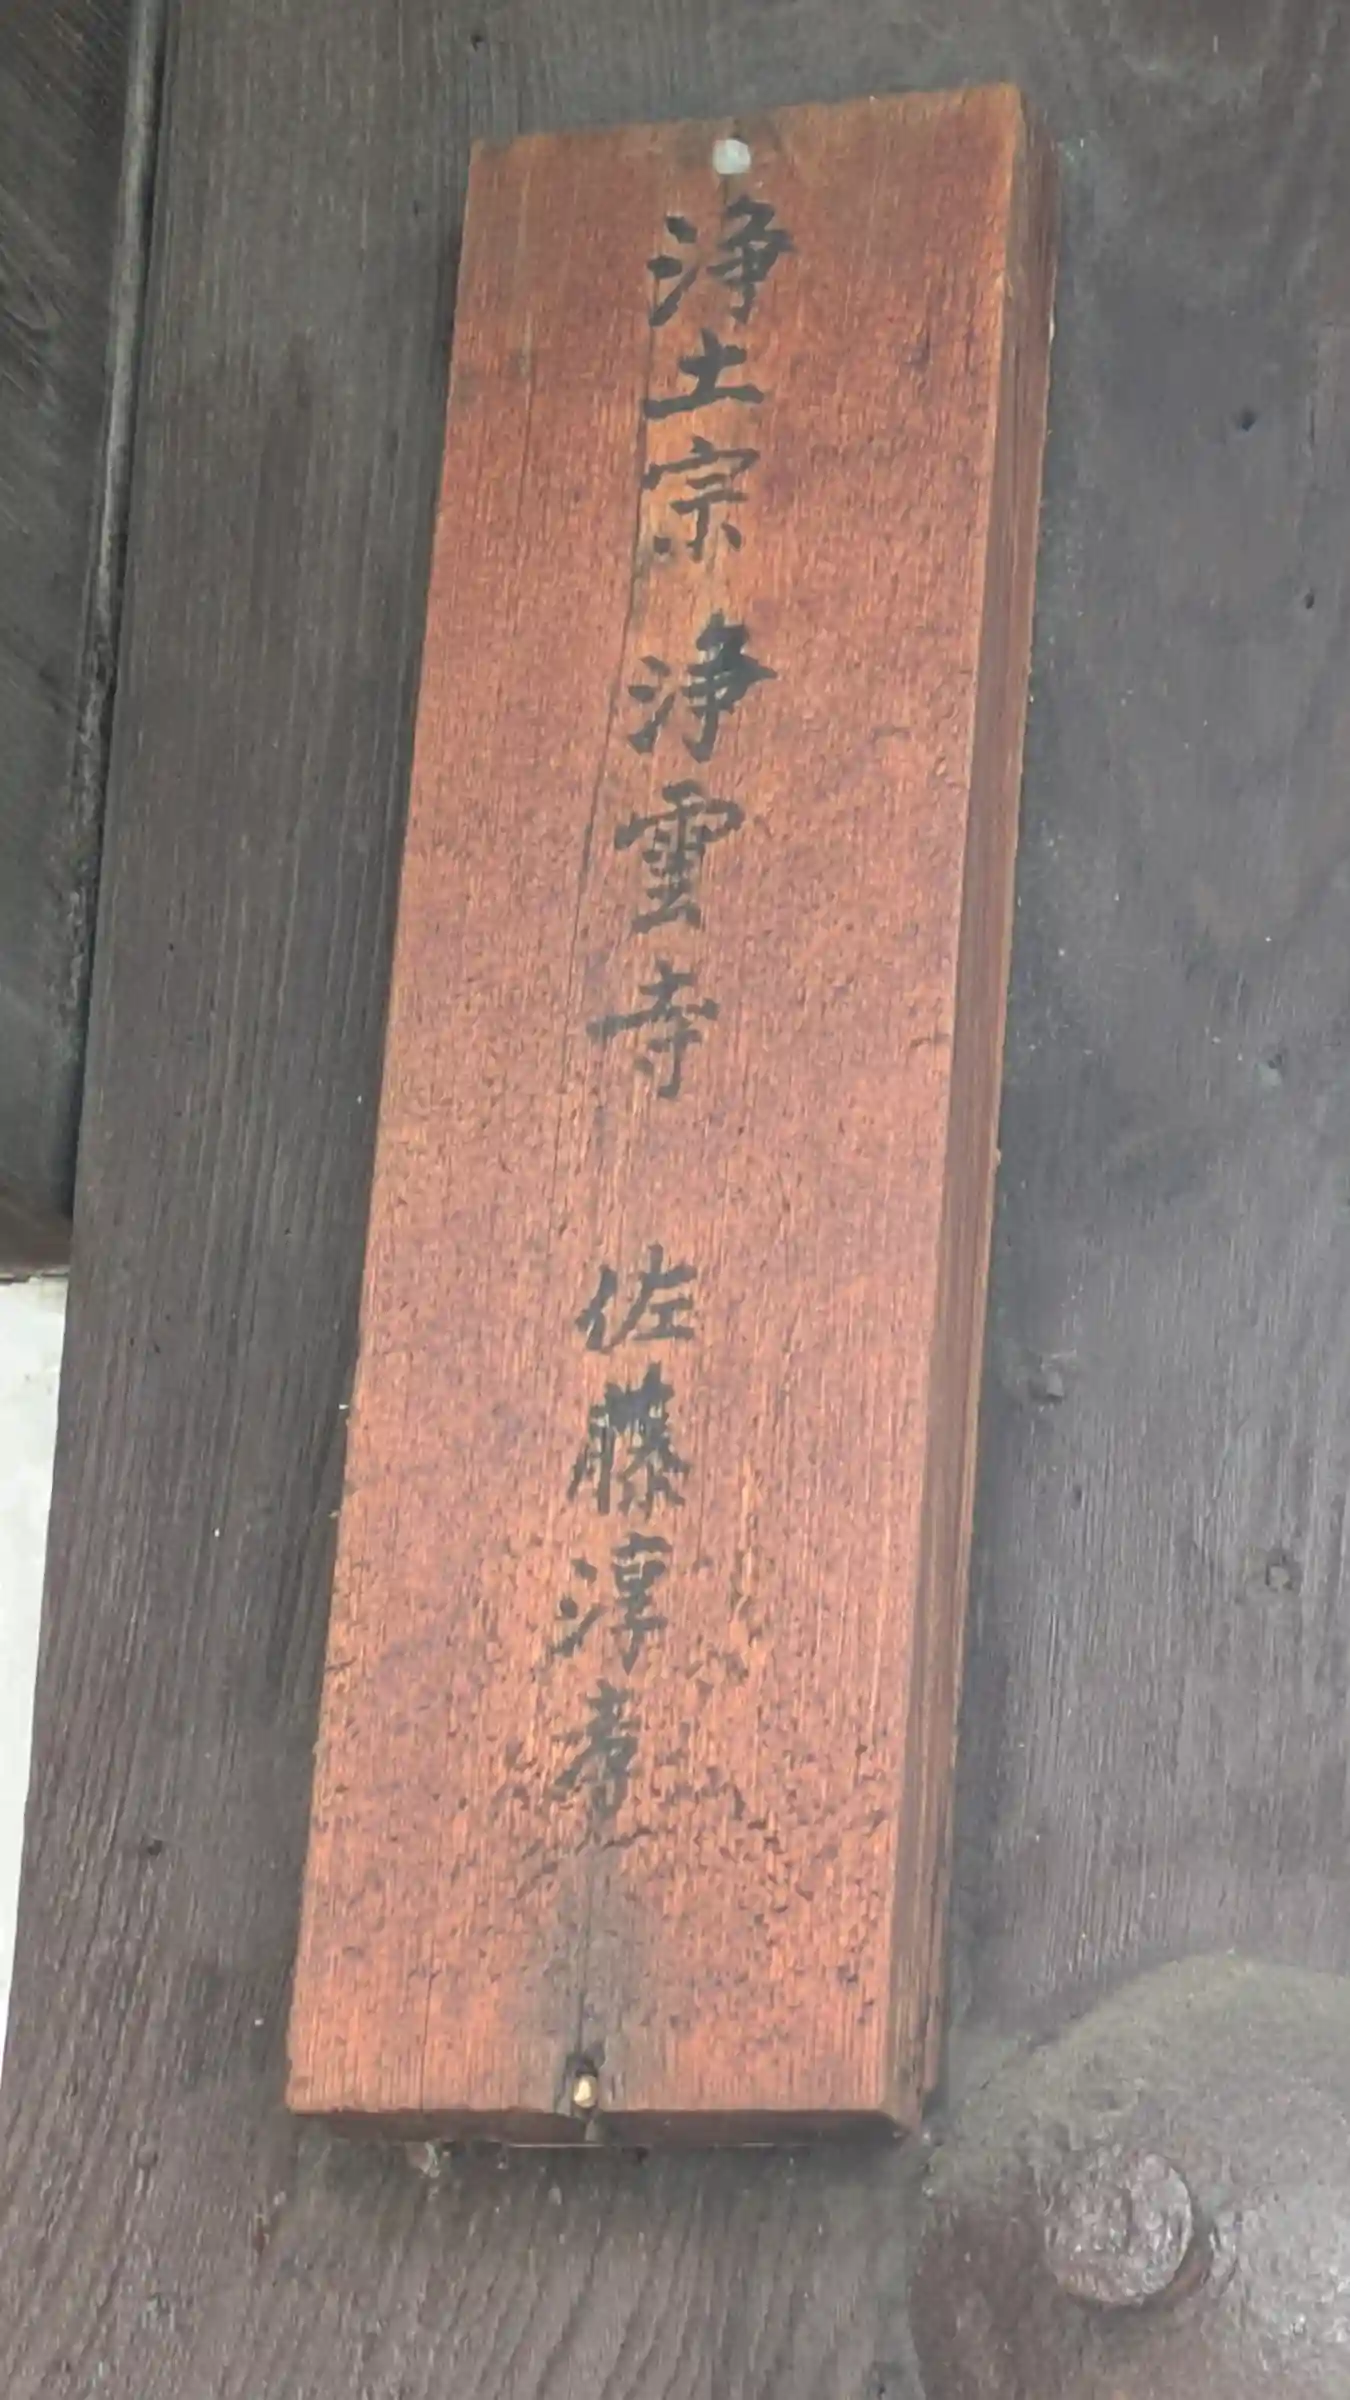 浄土宗 浄雲寺 佐藤淳